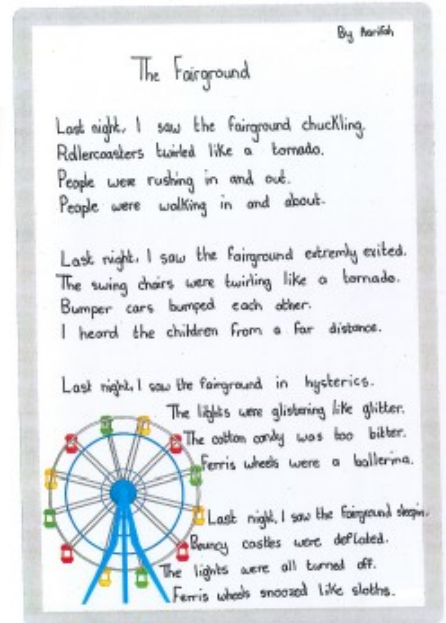 By Aarifah
The Fairground
Last night, I saw the fairground chuckling.
Rollercoasters twirled like a tornado.
People were rushing in and out.
People were walking in and about.
Last night, I saw the fairground extremly exited.
The swing chairs were twirling like a tornado.
Bumper cars bumped each other.
I heard the children from a far distance.
Last night, I saw the fairground in hysterics.
The lights were glistering like glitter.
The cotton candy was too bitter.
Ferris wheels were a ballerina.
Last night, I saw the fairground sleepin.
Bouncy castles were deflated.
The lights were all turned off.
Ferris wheels snoozed like sloths.